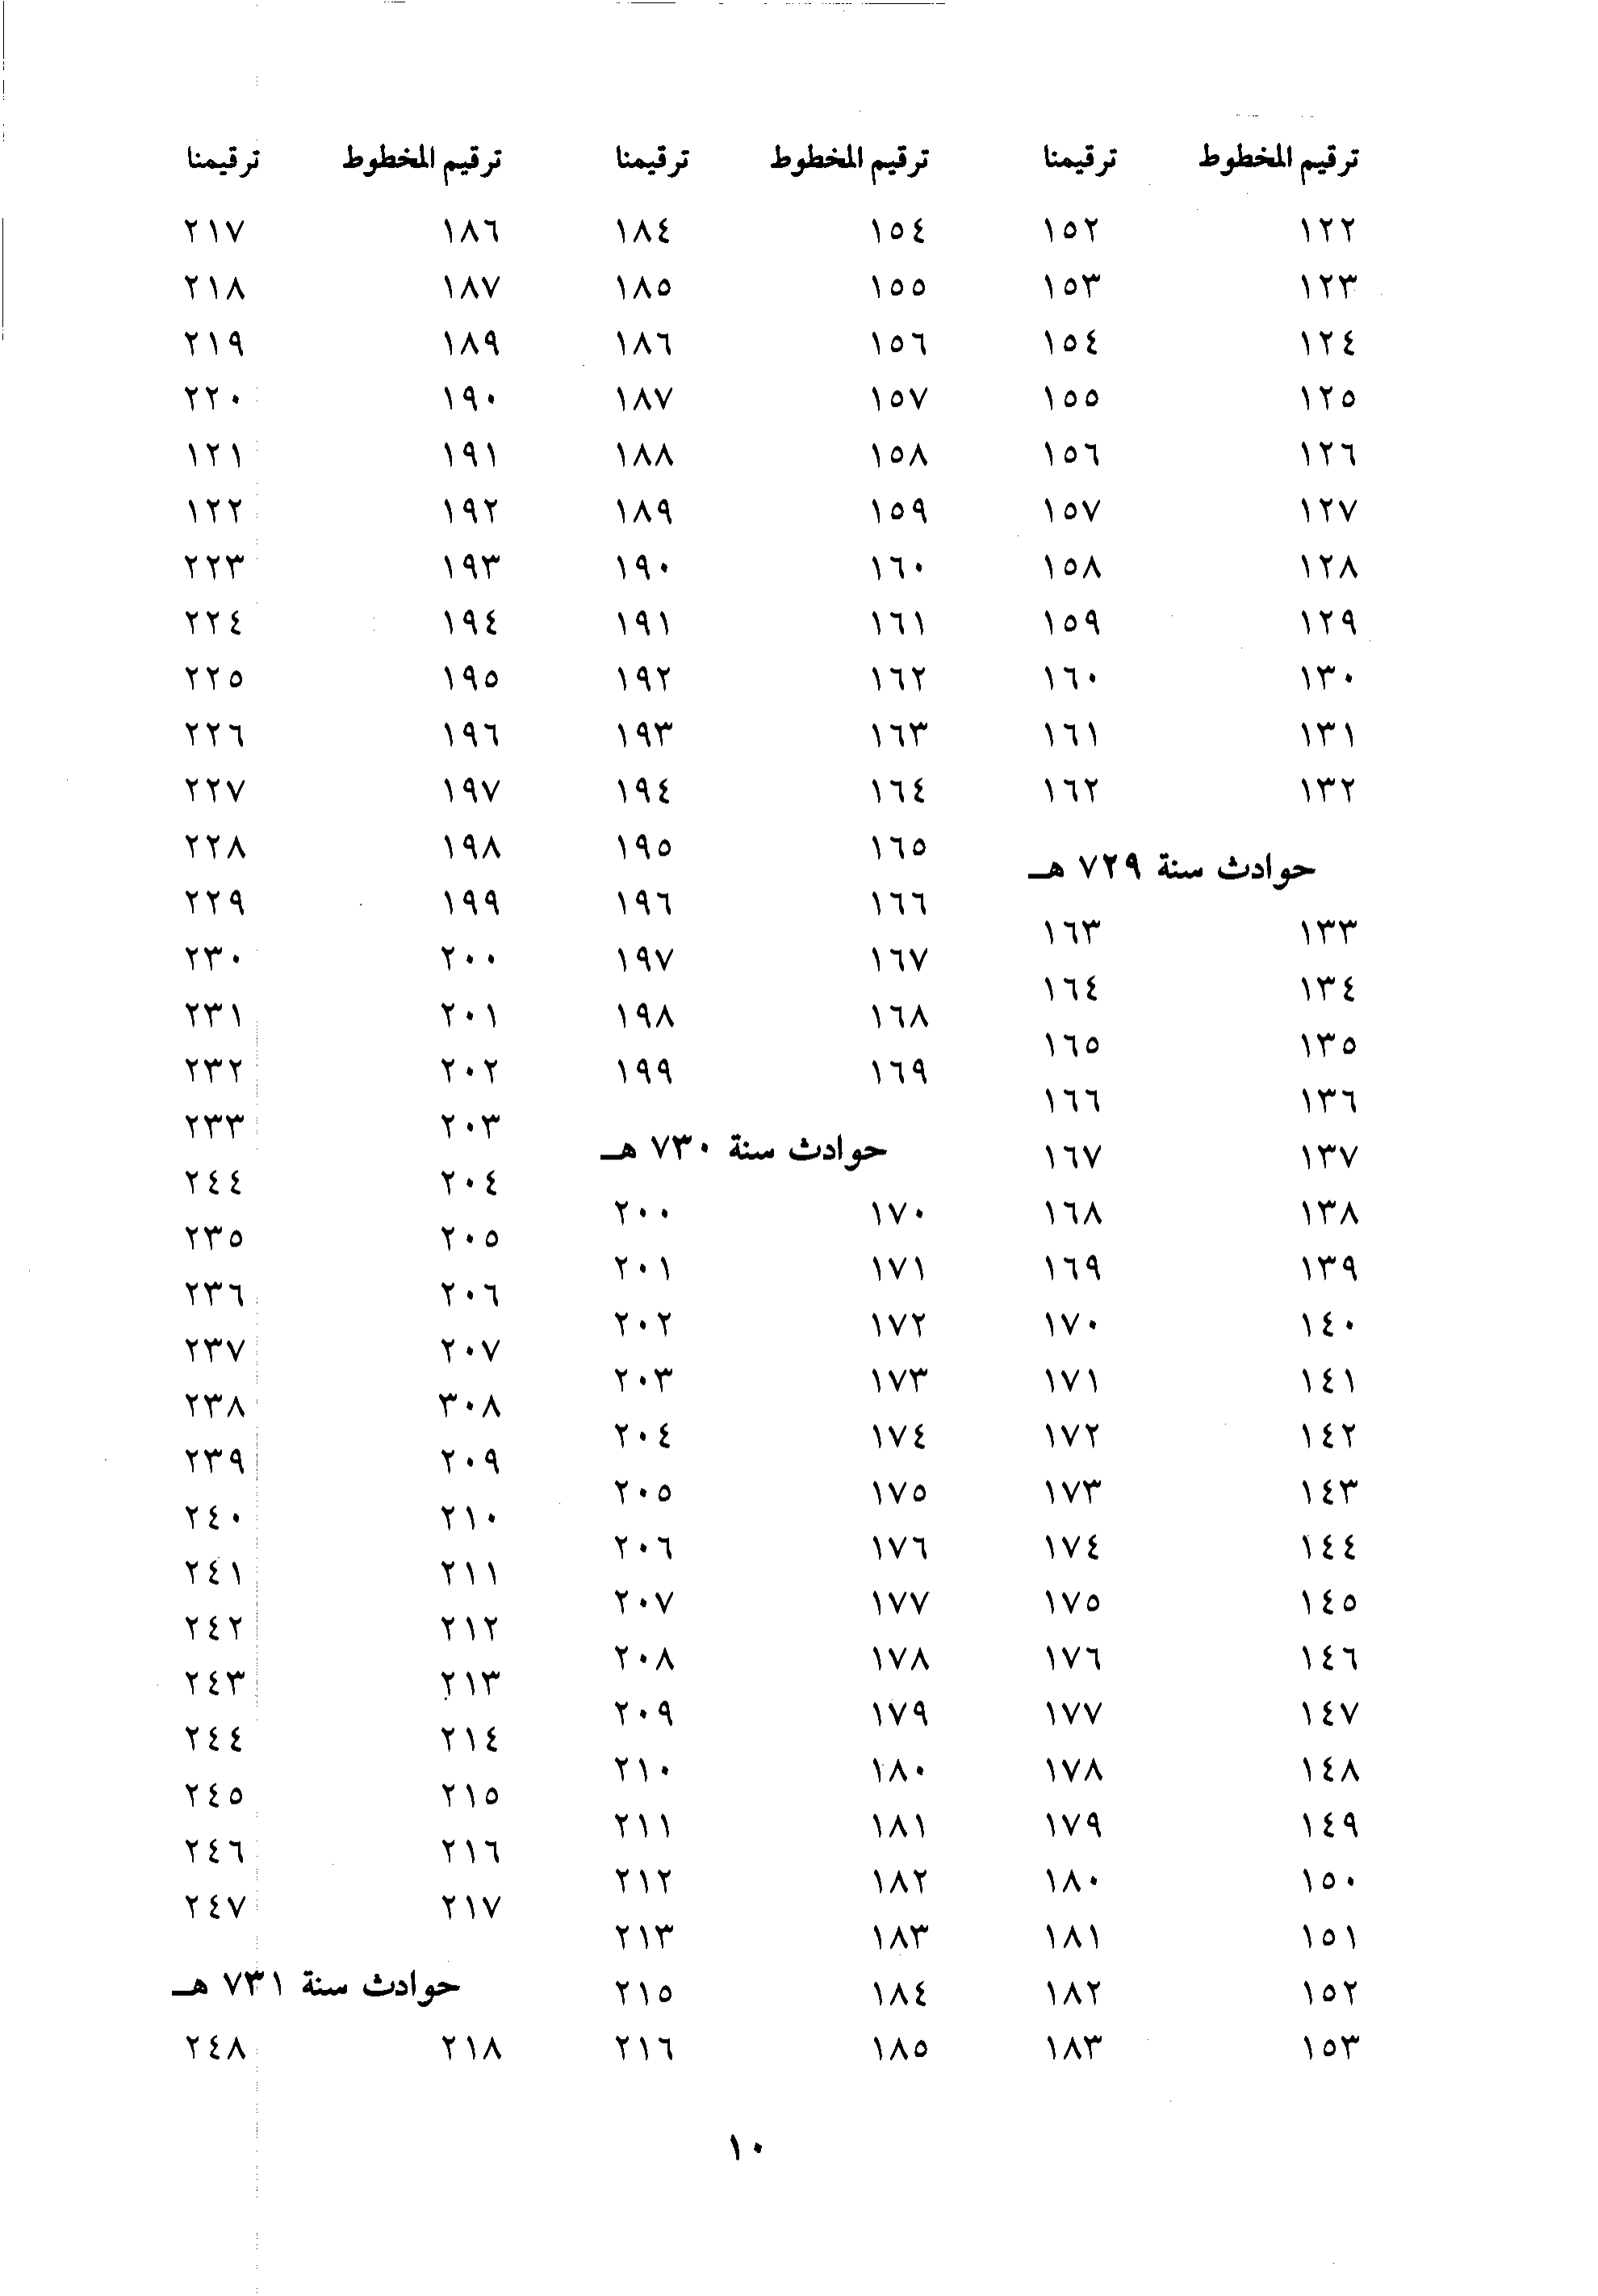 ترقيم المخطوط ترقيمنا
١٢٢ ١٥٢
١٢٣ ١٥٣
١٢٤ ١٥٤
١٢٥ ١٥٥
١٢٦ ١٥٦
١٢٧ ١٥٧
١٢٨ ١٥٨
١٢٩ ١٥٩
١٣٠ ١٦٠
١٣١ ١٦١
١٣٢ ١٦٢
حوادث سنة ٧٢٩ هـ
١٣٣ ١٦٣
١٣٤ ١٦٤
١٣٥ ١٦٥
١٣٦ ١٦٦
١٣٧ ١٦٧
١٣٨ ١٦٨
١٣٩ ١٦٩
١٤٠ ١٧٠
١٤١ ١٧١
١٤٢ ١٧٢
١٤٣ ١٧٣
١٤٤ ١٧٤
١٤٥ ١٧٥
١٤٦ ١٧٦
١٤٧ ١٧٧
١٤٨ ١٧٨
١٤٩ ١٧٩
١٥٠ ١٨٠
١٥١ ١٨١
١٥٢ ١٨٢
١٥٣ ١٨٣
ترقيم المخطوط ترقيمنا
١٥٤ ١٨٤
١٥٥ ١٨٥
١٥٦ ١٨٦
١٥٧ ١٨٧
١٥٨ ١٨٨
١٥٩ ١٨٩
١٦٠ ١٩٠
١٦١ ١٩١
١٦٢ ١٩٢
١٦٣ ١٩٣
١٦٤ ١٩٤
١٦٥ ١٩٥
١٦٦ ١٩٦
١٦٧ ١٩٧
١٦٨ ١٩٨
١٦٩ ١٩٩
حوادث سنة ٧٣٠ هـ
١٧٠ ٢٠٠
١٧١ ٢٠١
١٧٢ ٢٠٢
١٧٣ ٢٠٣
١٧٤ ٢٠٤
١٧٥ ٢٠٥
١٧٦ ٢٠٦
١٧٧ ٢٠٧
١٧٨ ٢٠٨
١٧٩ ٢٠٩
١٨٠ ٢١٠
١٨١ ٢١١
١٨٢ ٢١٢
١٨٣ ٢١٣
١٨٤ ٢١٥
١٨٥ ٢١٦
ترقيم المخطوط ترقيمنا
١٨٦ ٢١٧
١٨٧ ٢١٨
١٨٩ ٢١٩
١٩٠ ٢٢٠
١٩١ ١٢١
١٩٢ ١٢٢
١٩٣ ٢٢٣
١٩٤ ٢٢٤
١٩٥ ٢٢٥
١٩٦ ٢٢٦
١٩٧ ٢٢٧
١٩٨ ٢٢٨
١٩٩ ٢٢٩
٢٠٠ ٢٣٠
٢٠١ ٢٣١
٢٠٢ ٢٣٢
٢٠٣ ٢٣٣
٢٠٤ ٢٤٤
٢٠٥ ٢٣٥
٢٠٦ ٢٣٦
٢٠٧ ٢٣٧
٣٠٨ ٢٣٨
٢٠٩ ٢٣٩
٢١٠ ٢٤٠
٢١١ ٢٤١
٢١٢ ٢٤٢
٢١٣ ٢٤٣
٢١٤ ٢٤٤
٢١٥ ٢٤٥
٢١٦ ٢٤٦
٢١٧ ٢٤٧
حوادث سنة ٧٣١ هـ
٢١٨ ٢٤٨
١٠